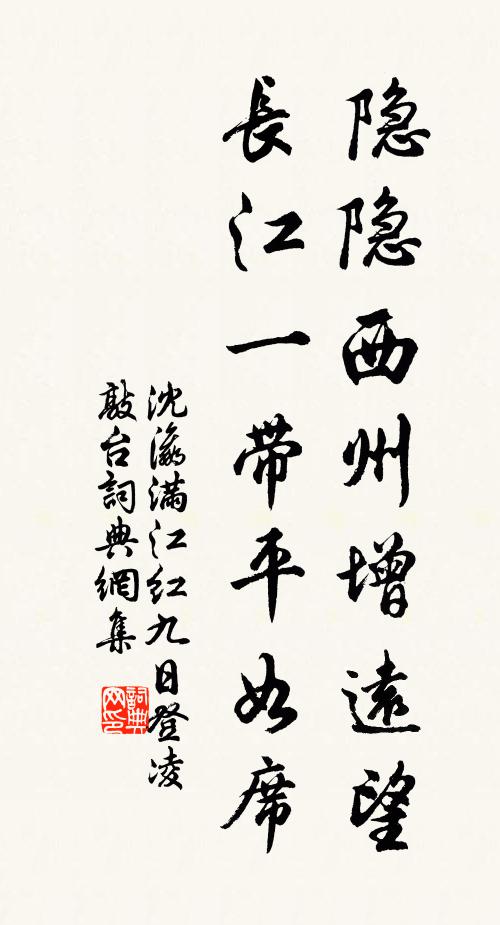 隐隐西州增遠望
長江一帶平如席
沈瀛滿江红九日登凌
敲台詞典網集
詞典网印